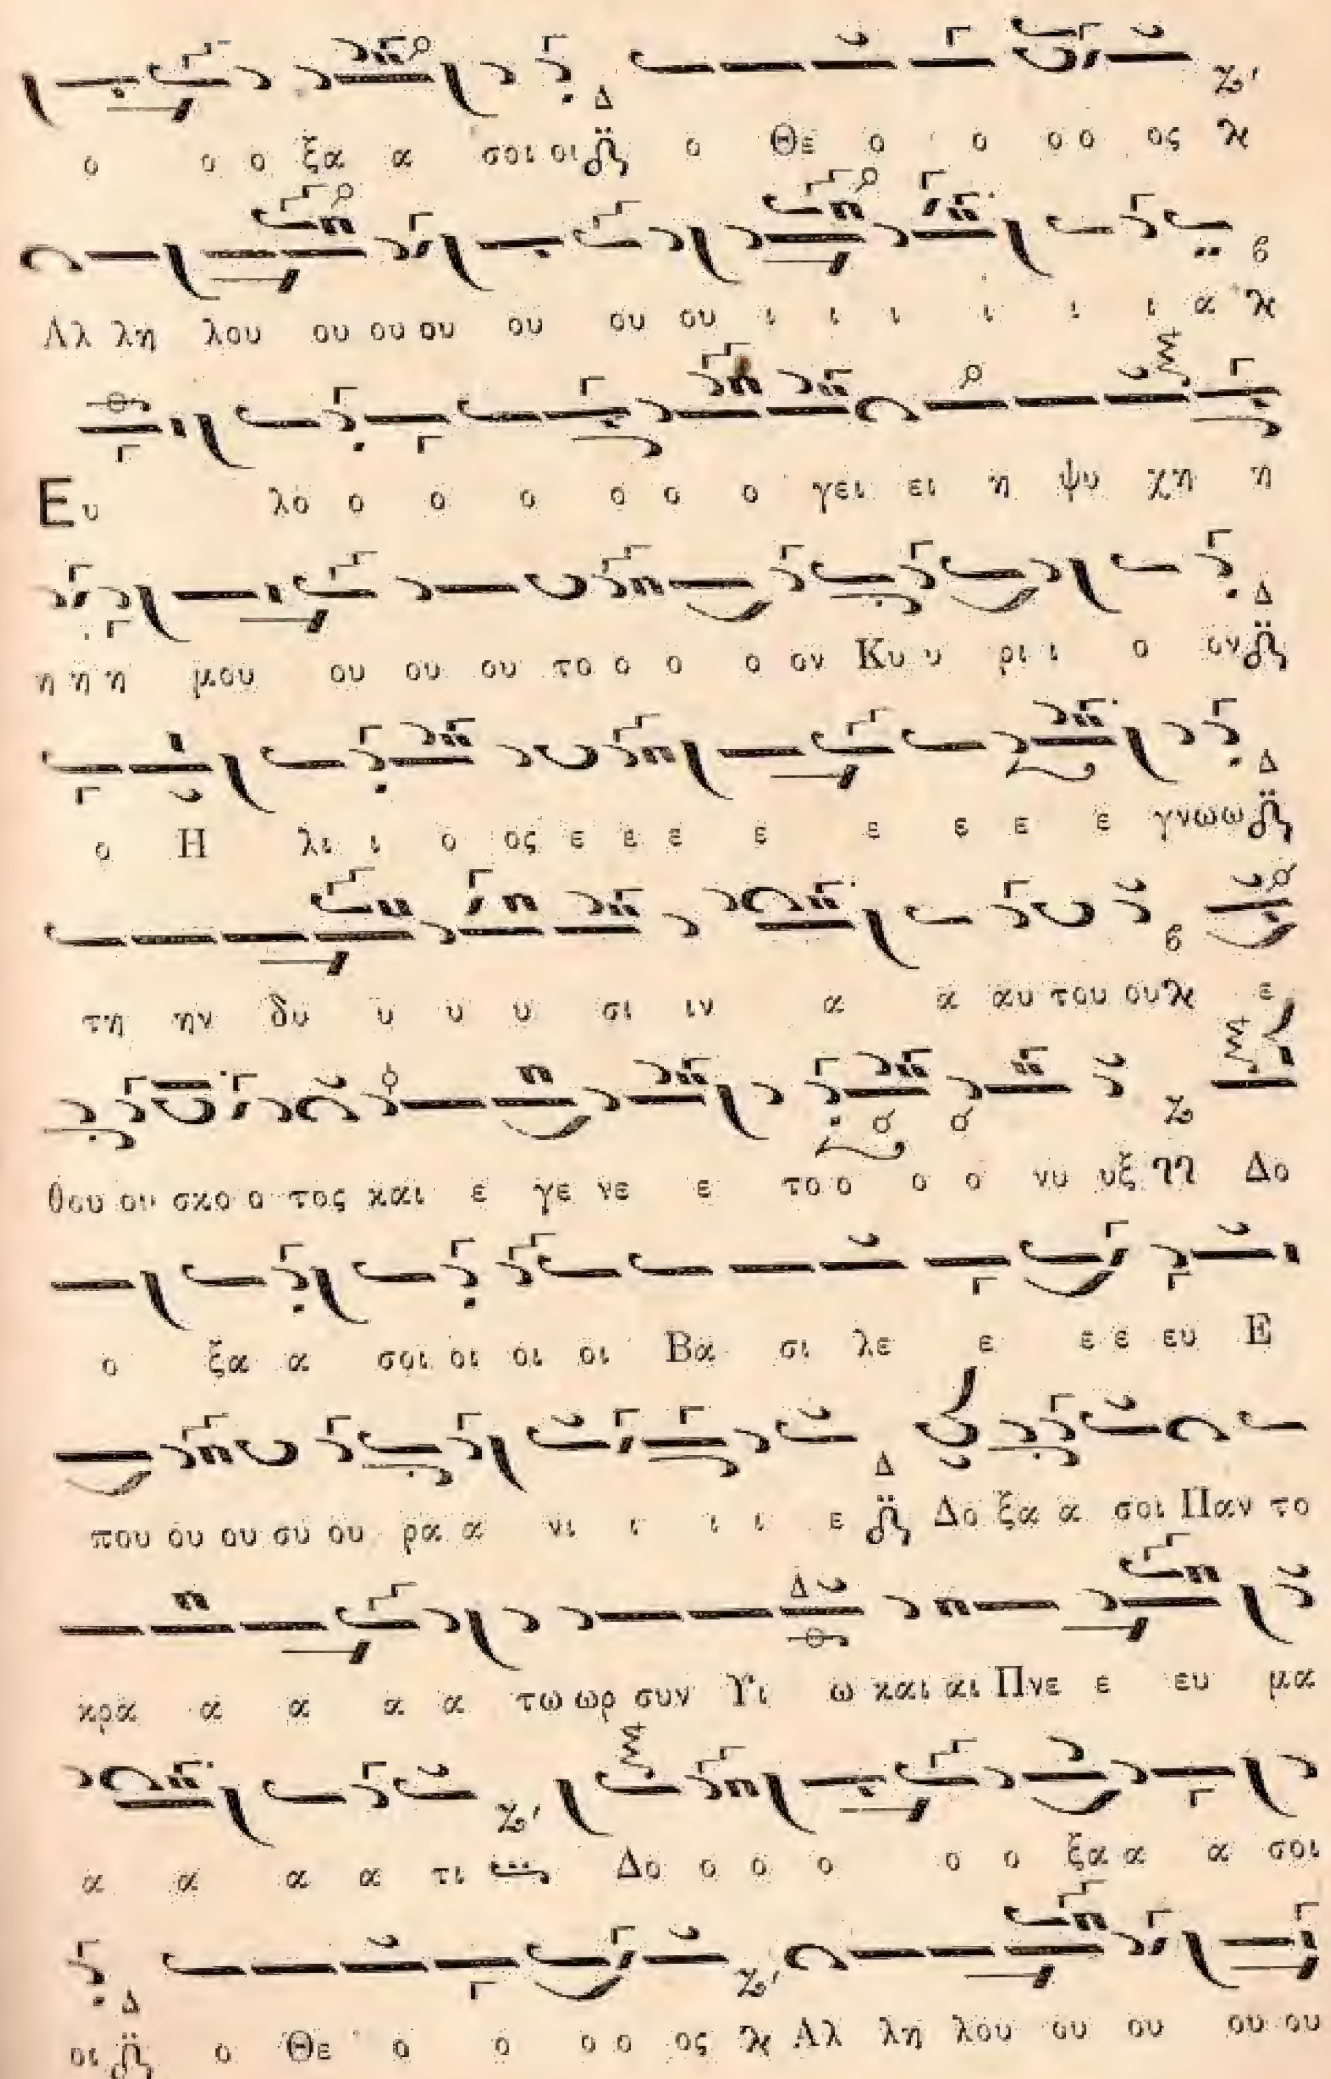 ο ο ο ξα α σοι οι ο Θε ο ο ο ο ος
Αλ λη λου ου ου ου ου ου ου ι ι ι ι ι ι α
Ευ λο ο ο ο ο ο ο ο γει ει η ψυ χη η
η η η μου ου ου ου το ο ο ο ον Κυ υ ρι ι ο ον
ο Η λι ι ο ος ε ε ε ε ε ε ε ε γνωω
τη ην δυ υ υ υ σι ιν α α αυ του ου ε
θου ου σκο ο τος και ε γε νε ε το ο ο ο νυ υξ Δο
ο ξα α σοι οι οι οι Βα σι λε ε ε ε ευ Ε
που ου ου ου ου ρα α νι ι ι ι ε Δο ξα α σοι Παν το
κρα α α α α τω ωρ συν Υι ω και αι Πνε ε ευ μα
α α α α τι Δο ο ο ο ο ο ξα α α σοι
οι ο Θε ο ο ο ο ος Αλ λη λου ου ου ου ου